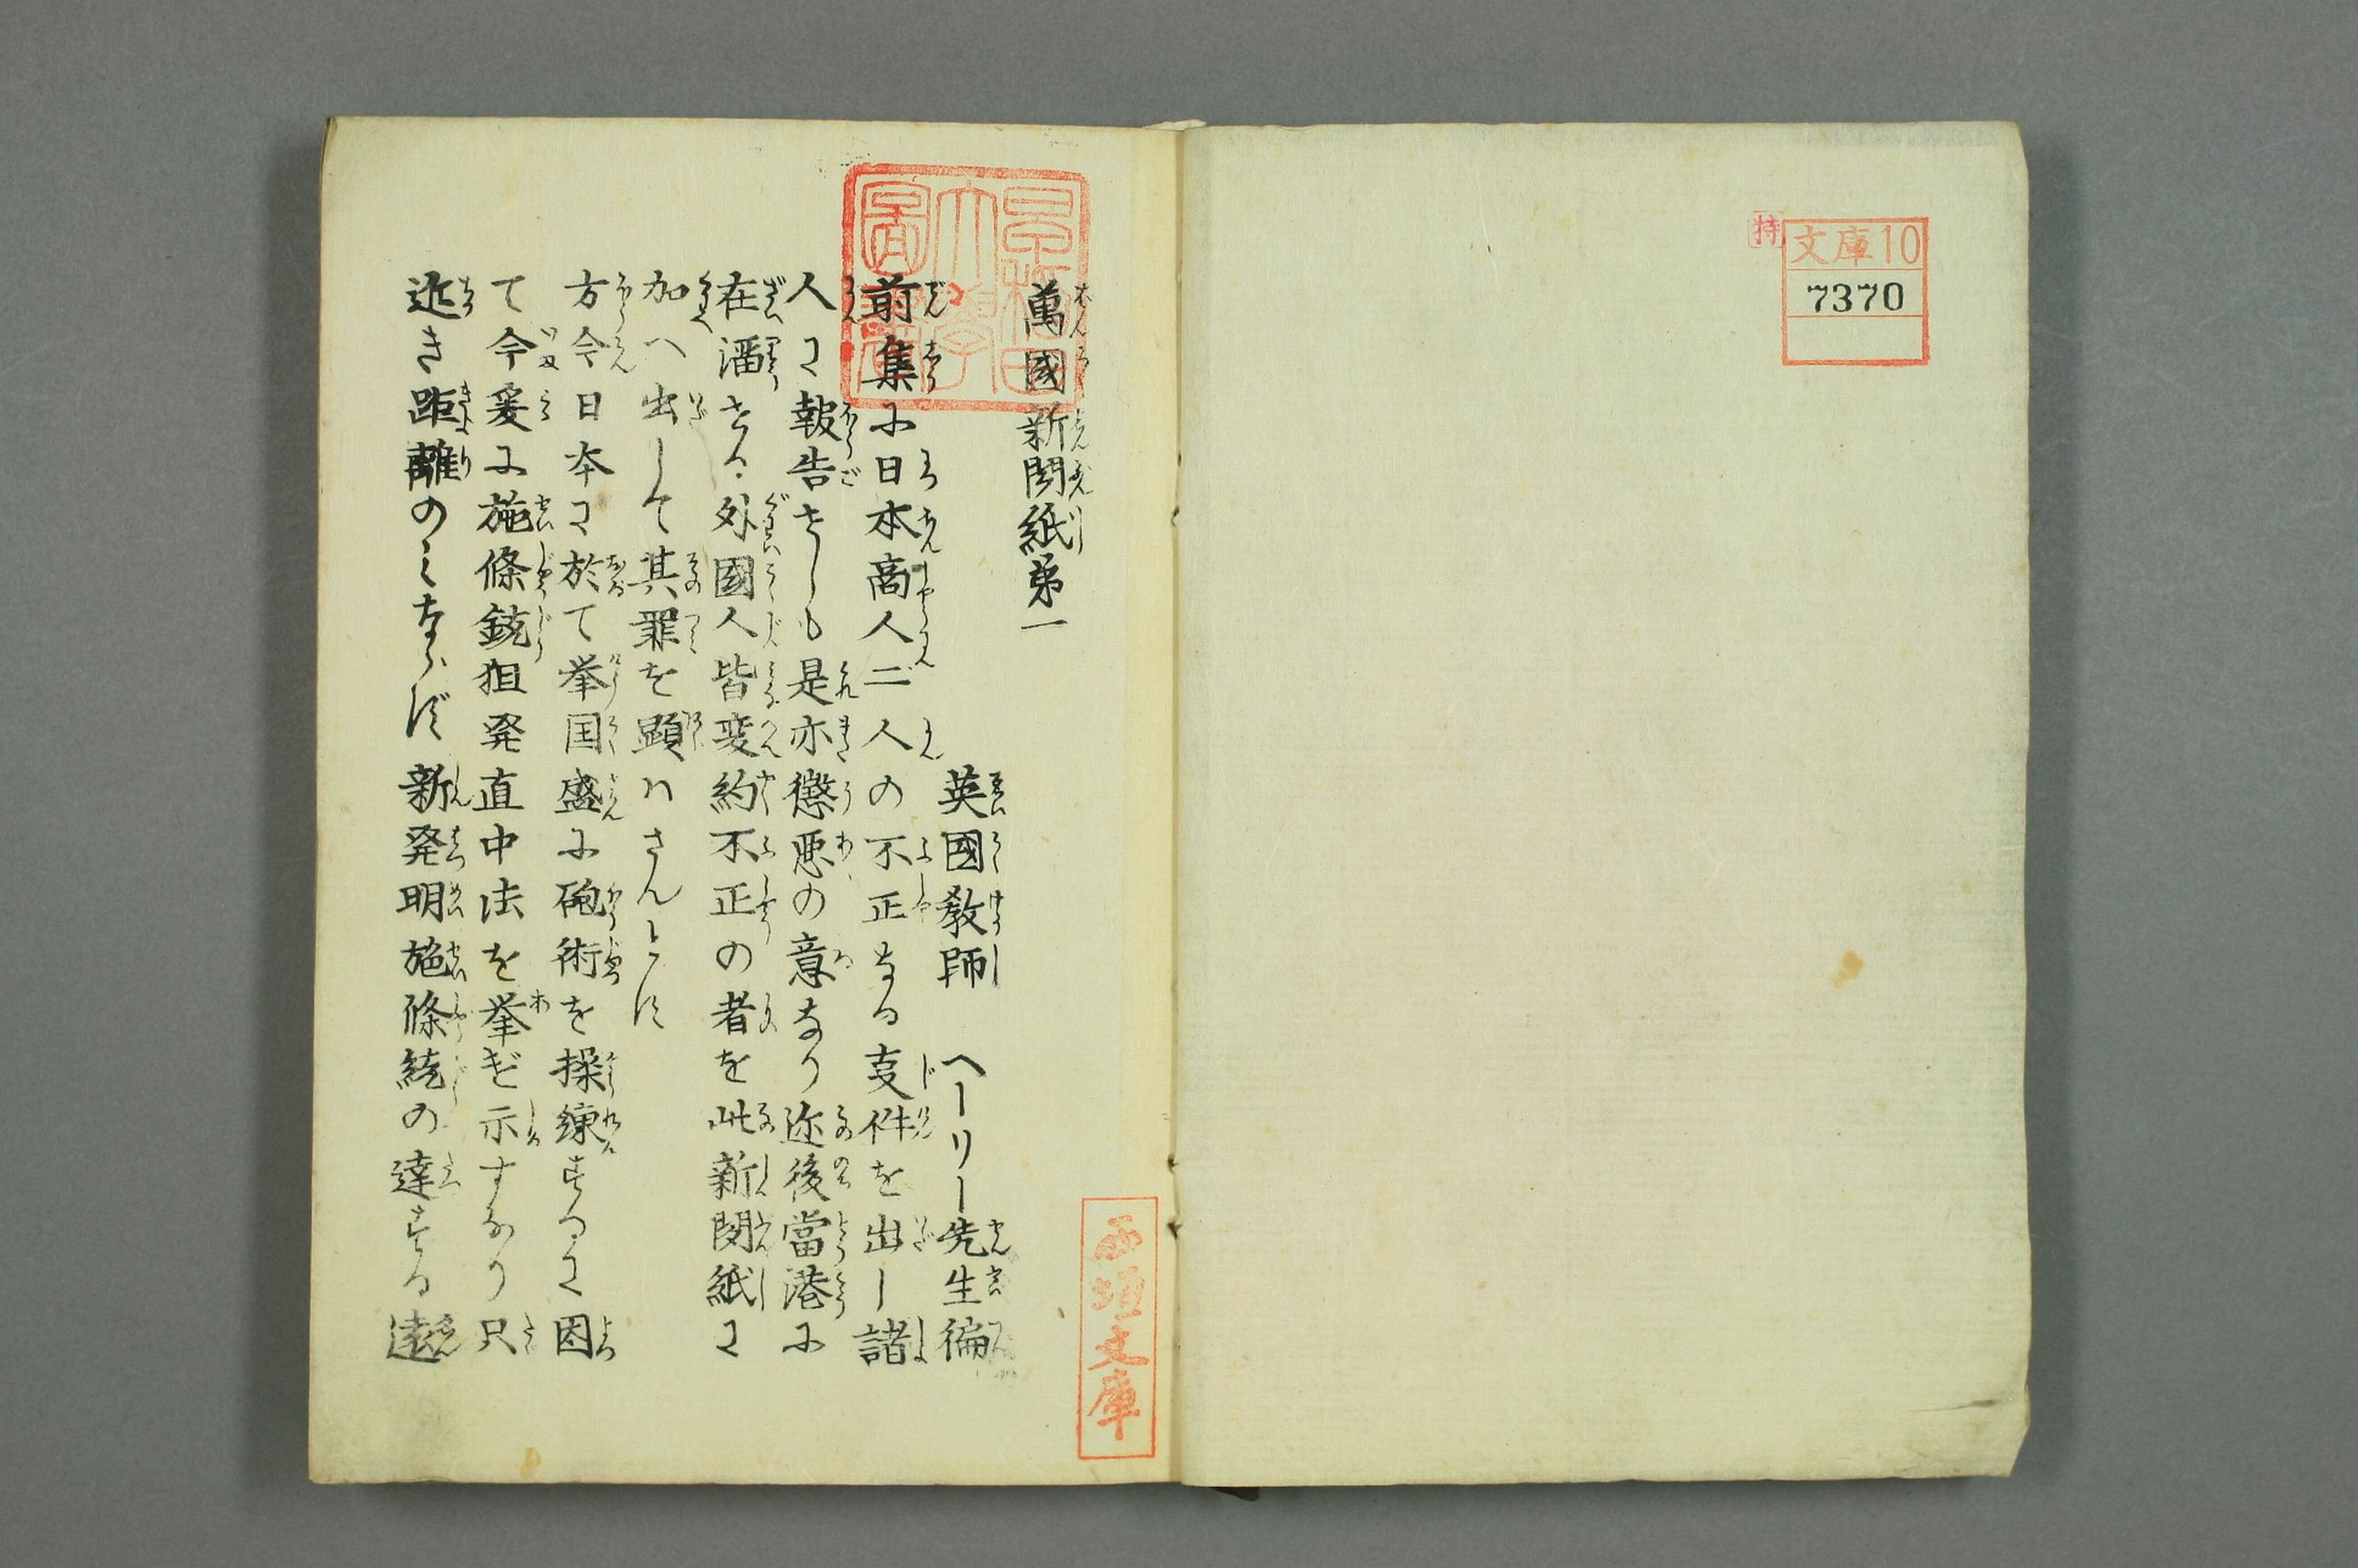 特
文庫10
7370
早稲田大學圖書
西垣文庫
萬國新聞紙第一
英國教師　ヘーリー先生徧
前集に日本商人二人の不正なる叓件を出し諸
人に報告せしも是亦懲悪の意なり迩後當港に
在溜せる外國人皆変約不正の者を此新聞紙に
加へ出して其罪を顕ハさんとす
方今日本に於て挙国盛に砲術を操練するに因
て今爰に施條銃狙発直中法を挙げ示すなり只
近き距離のミならず新発明施條銃の達する遠